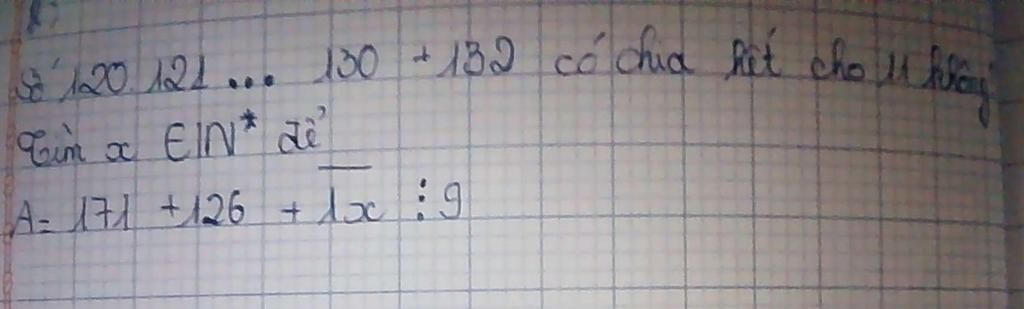 Số 120.121... 130 + 132 có chia hết cho 11 không
Tìm x ∈ IN* để
A = 171 + 126 + \overline{1x} ⋮ 9